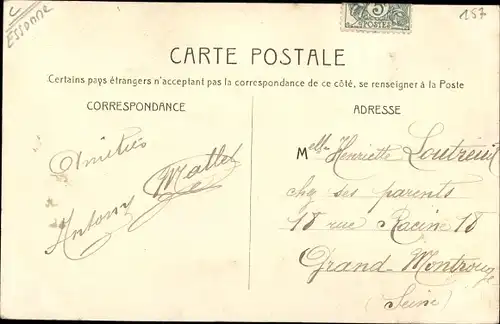 C
ESSONNE
157
5
POSTES
CARTE POSTALE
Certains pays étrangers n'acceptant pas la correspondance de ce côté, se renseigner à la Poste
CORRESPONDANCE
ADRESSE
Amitiés
Antony Mallet
Melle Henriette Loutreuil
chez ses parents
18 rue Racine 18
Grand-Montrouge
(Seine)